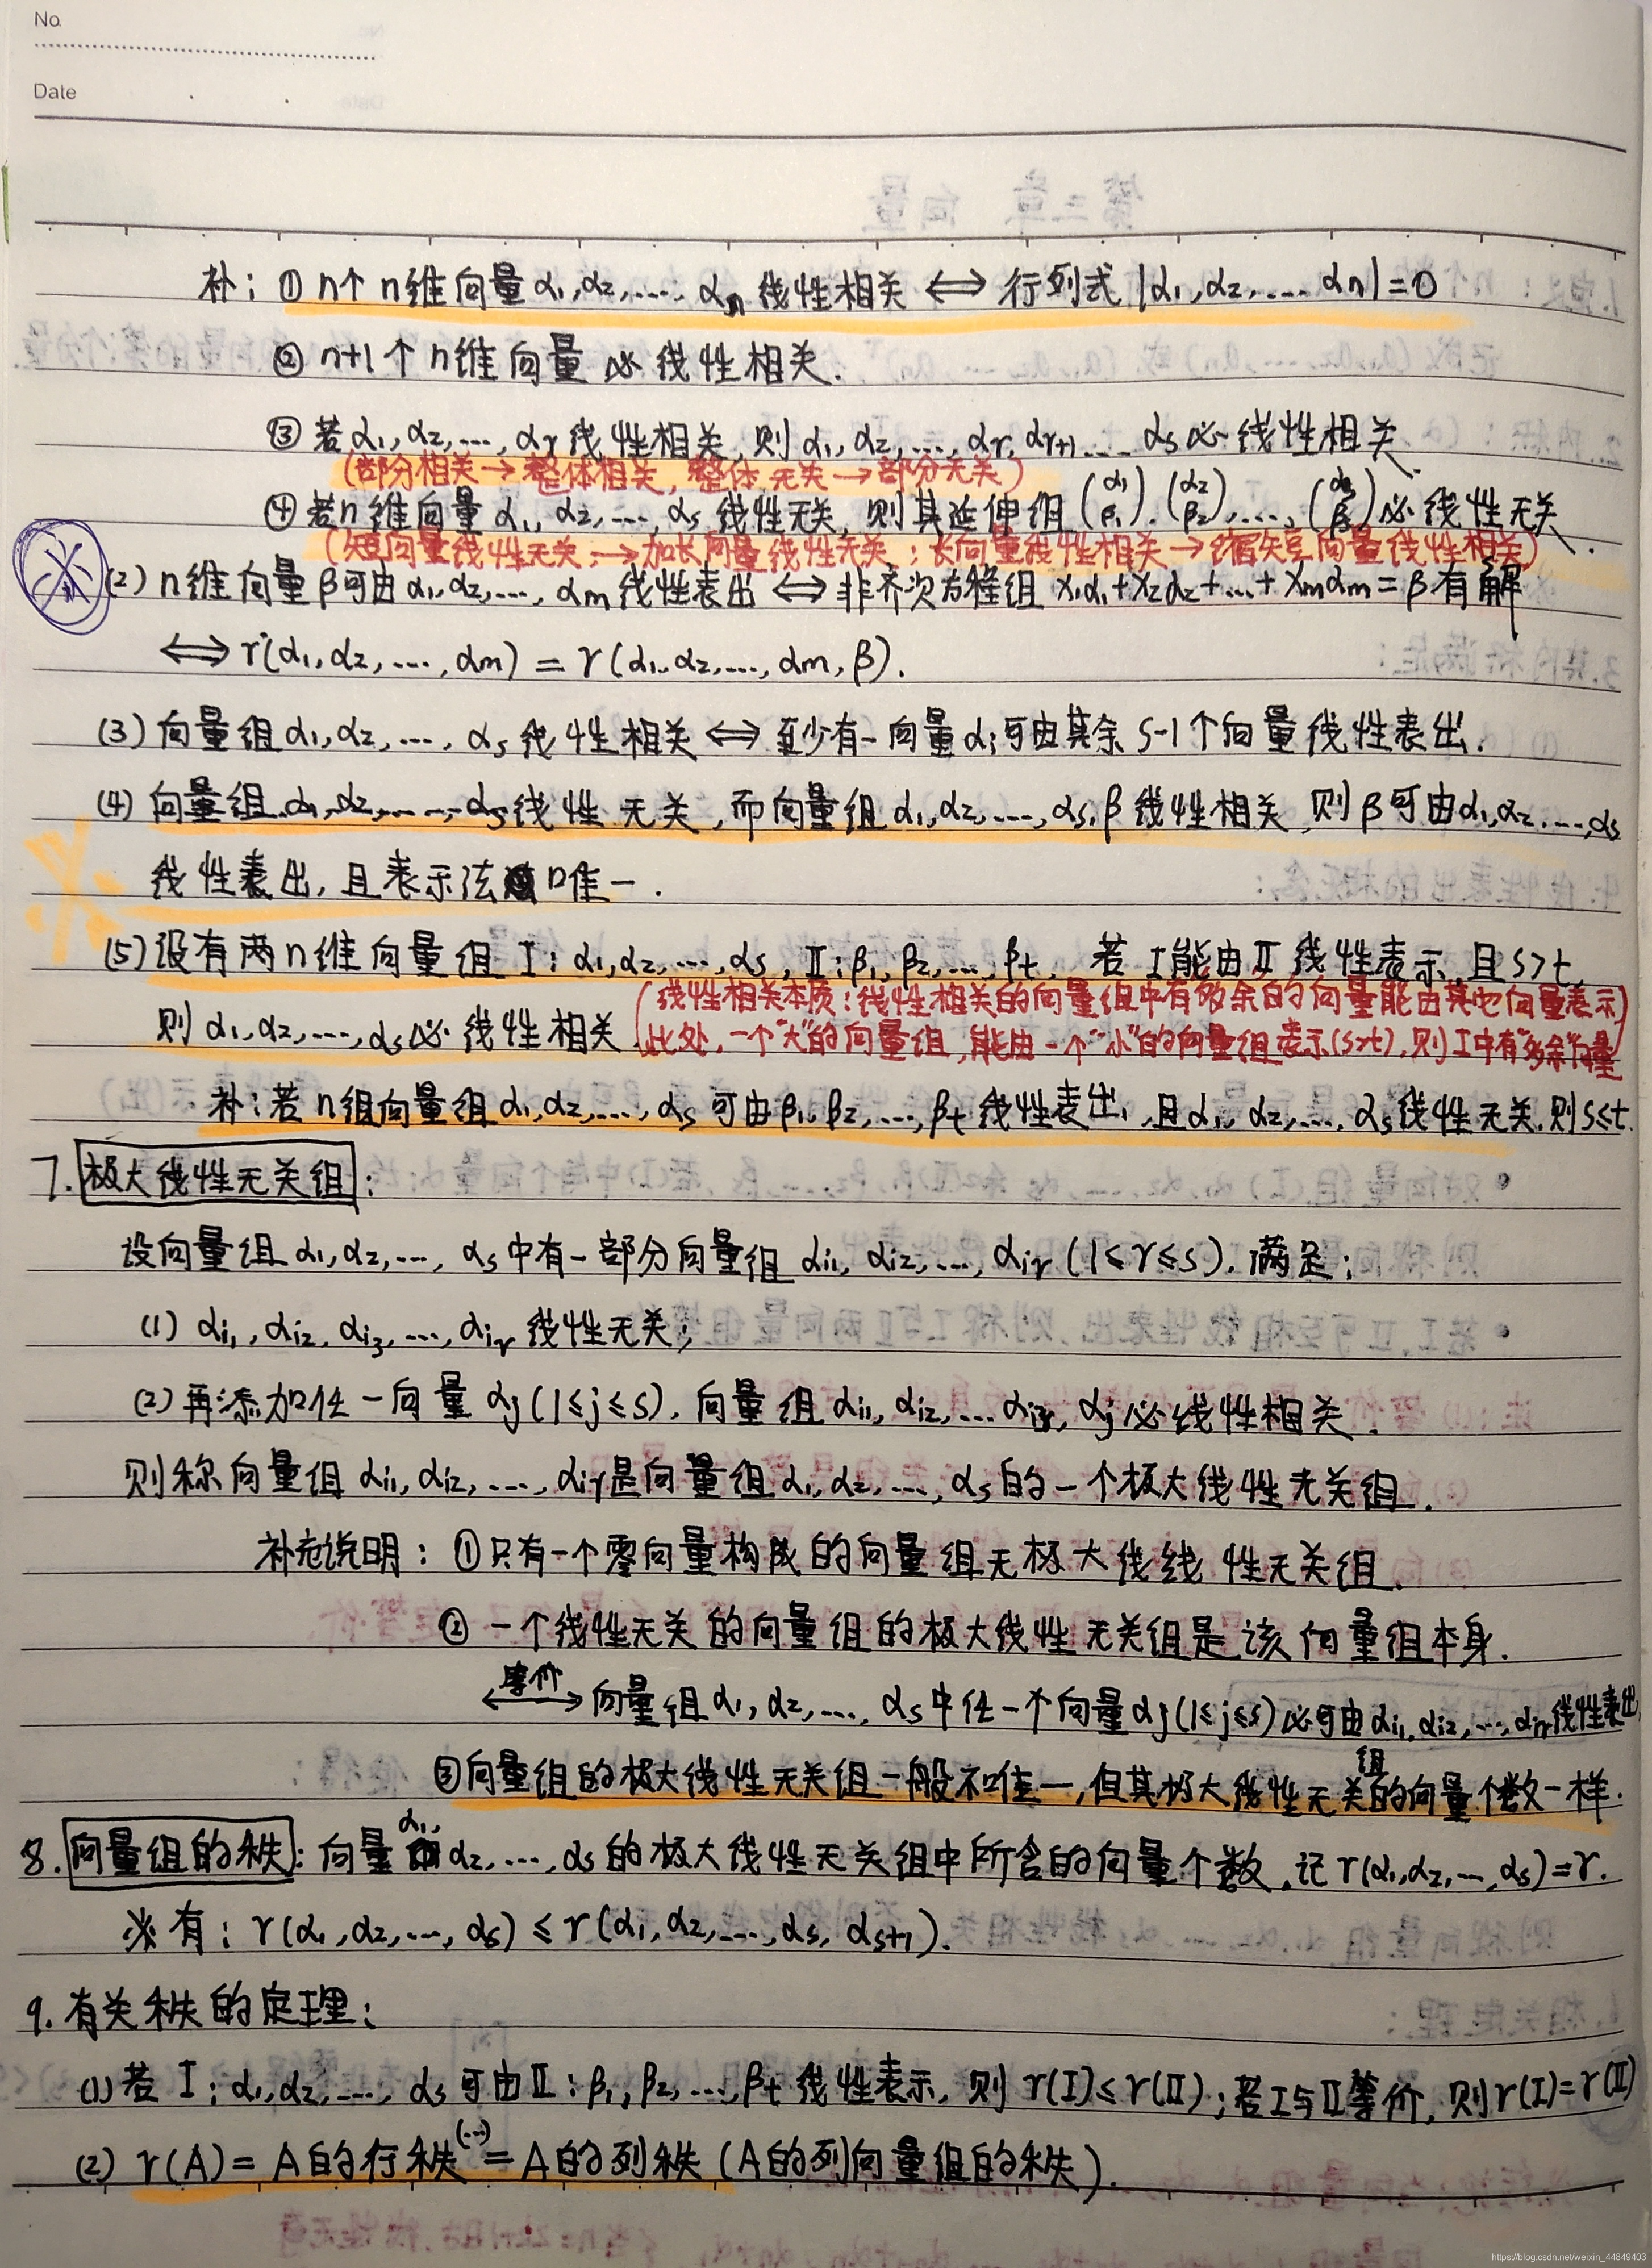 No.
Date
补：① n个n维向量α₁,α₂,…,αₙ 线性相关 ⟺ 行列式|α₁,α₂,…,αₙ|=0
② n+1个n维向量必线性相关.
③ 若α₁,α₂,…,αᵣ线性相关,则α₁,α₂,…,αᵣ,αᵣ₊₁…αₛ必线性相关.
(部分相关→整体相关,整体无关→部分无关)
④ 若n维向量α₁,α₂,…,αₛ线性无关,则其延伸组(α₁ β₁),(α₂ β₂),…,(αₛ βₛ)必线性无关.
(短向量线性无关→加长向量线性无关；长向量线性相关→缩短向量线性相关)
※ (2) n维向量β可由α₁,α₂,…,αm线性表出 ⟺ 非齐次方程组x₁α₁+x₂α₂+…+xmαm=β有解
⟺ r(α₁,α₂,…,αm)=r(α₁,α₂,…,αm,β).
(3) 向量组α₁,α₂,…,αₛ线性相关 ⟺ 至少有一向量αᵢ可由其余s-1个向量线性表出.
(4) 向量组α₁,α₂,…,αₛ线性无关,而向量组α₁,α₂,…,αₛ,β线性相关,则β可由α₁,α₂,…,αₛ
※ 线性表出,且表示法唯一.
(5) 设有两n维向量组Ⅰ：α₁,α₂,…,αₛ,Ⅱ：β₁,β₂,…,βt,若Ⅰ能由Ⅱ线性表示,且s>t,
(线性相关本质：线性相关的向量组中有多余的向量能由其他向量表示)
则α₁,α₂,…,αₛ必线性相关
(此处,一个"大"的向量组,能由一个"小"的向量组表示(s>t),则Ⅰ中有"多余"向量
补：若n组向量组α₁,α₂,…,αₛ可由β₁,β₂,…,βt线性表出,且α₁,α₂,…,αₛ线性无关,则s≤t.
7. 极大线性无关组：
设向量组α₁,α₂,…,αₛ中有一部分向量组αi₁,αi₂,…,αiᵣ(1≤r≤s).满足：
(1) αi₁,αi₂,αi₃,…,αiᵣ线性无关；
(2) 再添加任一向量αj(1≤j≤s),向量组αi₁,αi₂,…αiᵣ,αj必线性相关.
则称向量组αi₁,αi₂,…,αiᵣ是向量组α₁,α₂,…,αₛ的一个极大线性无关组.
补充说明：①只有一个零向量构成的向量组无极大线线性无关组.
② 一个线性无关的向量组的极大线性无关组是该向量组本身.
⟷等价 向量组α₁,α₂,…,αₛ中任一个向量αj(1≤j≤s)必可由αi₁,αi₂,…,αiᵣ线性表出
③向量组的极大线性无关组一般不唯一,但其极大线性无关组的向量个数一样.
8. 向量组的秩：向量α₁,α₂,…,αₛ的极大线性无关组中所含的向量个数,记r(α₁,α₂,…,αₛ)=r.
※有：r(α₁,α₂,…,αₛ)≤r(α₁,α₂,…,αₛ,αₛ₊₁).
9. 有关秩的定理：
(1)若Ⅰ：α₁,α₂,…,αₛ可由Ⅱ：β₁,β₂,…,βt线性表示,则r(Ⅰ)≤r(Ⅱ)；若Ⅰ与Ⅱ等价,则r(Ⅰ)=r(Ⅱ)
(2) r(A)=A的行秩(…)=A的列秩(A的列向量组的秩).
https://blog.csdn.net/weixin_44849403